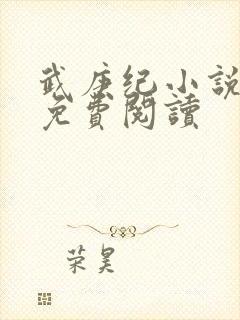 武庚纪小説
免費閱讀
荣昊